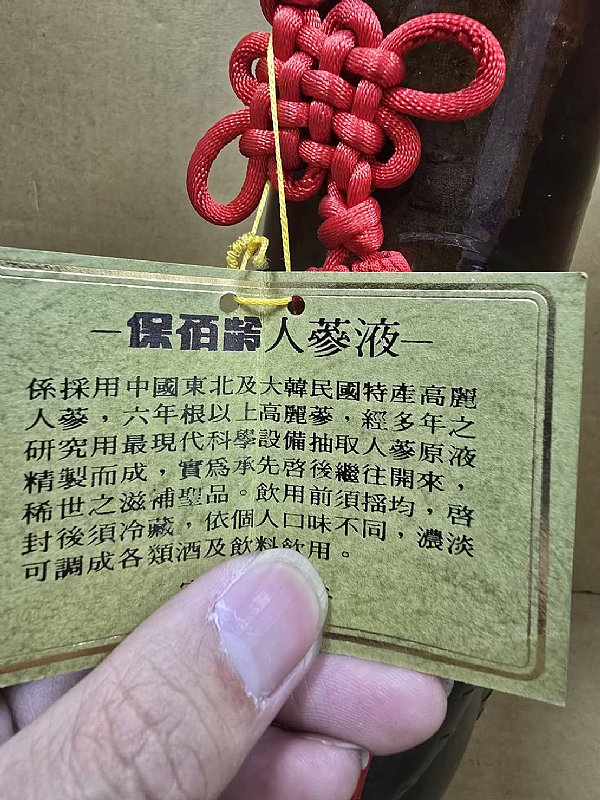 —保佰齡人蔘液—
係採用中國東北及大韓民國特產高麗
人蔘，六年根以上高麗蔘，經多年之
研究用最現代科學設備抽取人蔘原液
精製而成，實為承先啓後繼往開來，
稀世之滋補聖品。飲用前須搖均，啓
封後須冷藏，依個人口味不同，濃淡
可調成各類酒及飲料飲用。